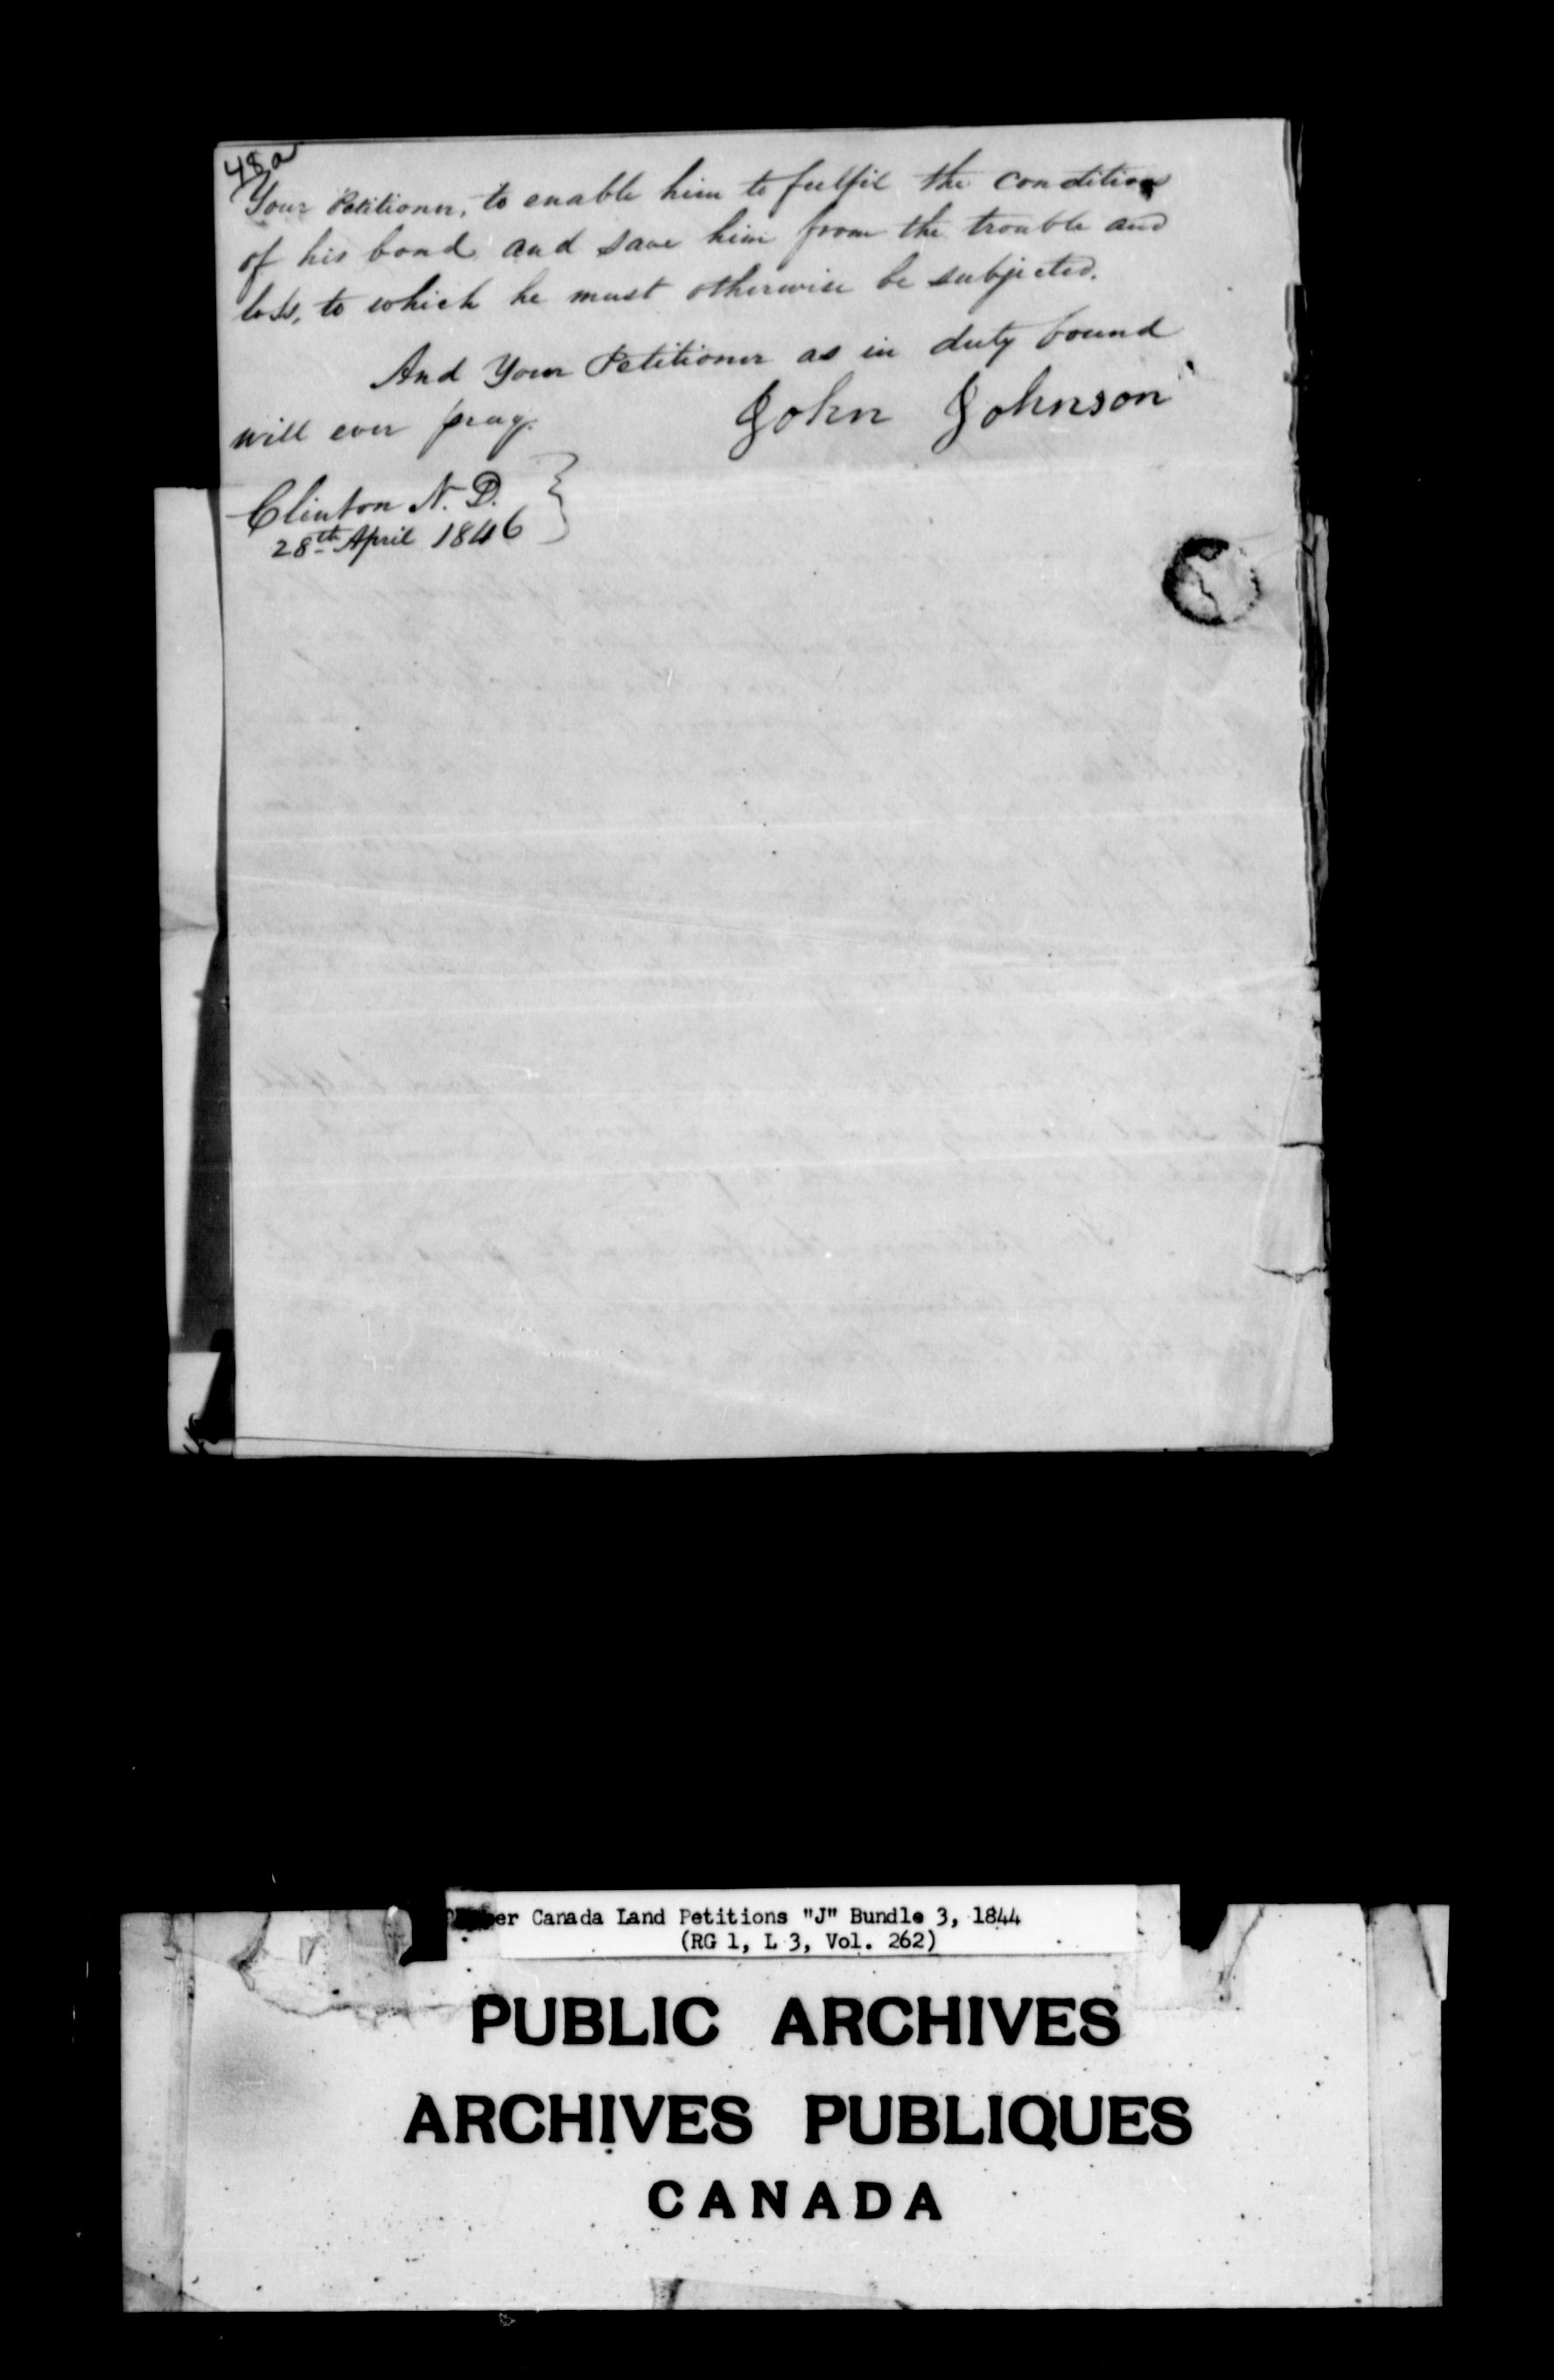 48a
Your Petitioner, to enable him to fulfil the condition
of his bond and save him from the trouble and
loss, to which he must otherwise be subjected.
And Your Petitioner as in duty bound
will ever pray.
John Johnson
Clinton N. D.
28th April 1846
er Canada Land Petitions "J" Bundle 3, 1844
(RG 1, L 3, Vol. 262)
PUBLIC ARCHIVES
ARCHIVES PUBLIQUES
CANADA